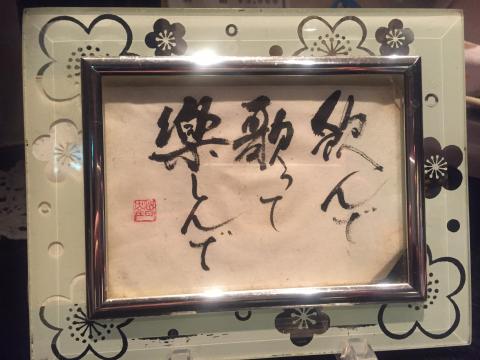 飲んで
歌って
楽しんで